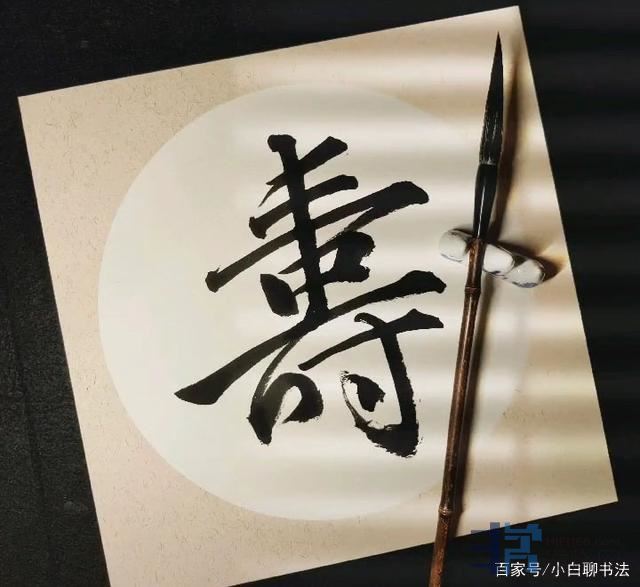 壽
百家号/小白聊书法